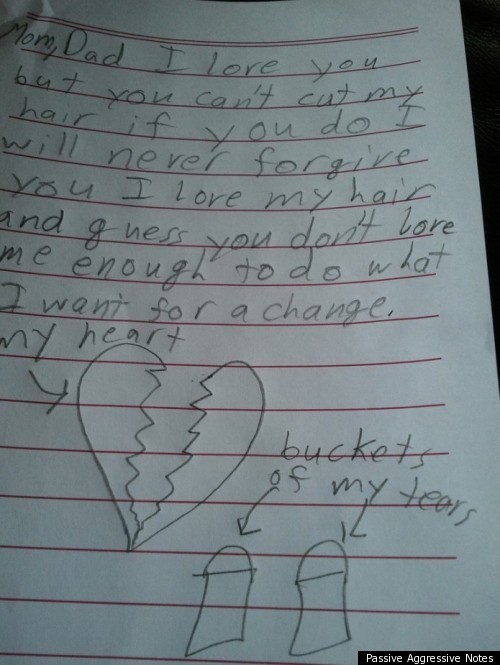 Mom, Dad I love you
but you can't cut my
hair if you do I
will never forgive
you I love my hair
and guess you don't love
me enough to do what
I want for a change.
my heart
buckets
of my tears
Passive Aggressive Notes